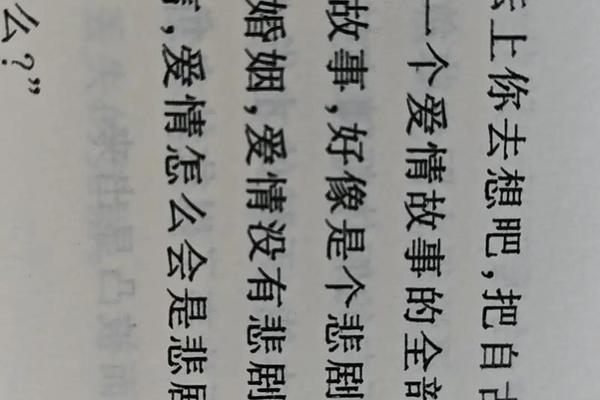 上你去想吧,把自古
一个爱情故事的全部
故事,好像是个悲剧
婚姻,爱情没有悲剧
,爱情怎么会是悲剧
么?”